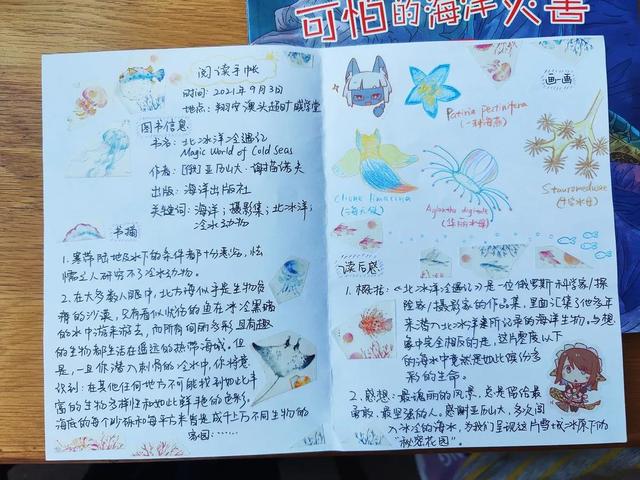 可怕的海洋灾害
阅读手帐
时间：2021年9月3日
地点：翔安澳头超时空学堂
图书信息
书名：北冰洋冷遇记
Magic World of Cold Seas
作者：[俄]亚历山大·谢苗诺夫
出版：海洋出版社
关键词：海洋；摄影集；北冰洋；
冷水动物
书摘
1.寒带陆地及水下的条件都十分恶劣，怯
懦之人研究不了冷水动物。
2.在大多数人眼中，北方海似乎是生物贫
瘠的沙漠，只有看似忧伤的鱼在冰冷黑暗
的水中游来游去，而所有绚丽多彩且有趣
的生物都生活在遥远的热带海域。但
是，一旦你潜入刺骨的冷水中，你将意
识到：在其他任何地方不可能找到如此丰
富的生物多样性和如此鲜艳的色彩。
海底的每个砂砾和每平方米皆是成千上万不同生物的
家园……
画一画
Patiria pectinifera
(一种海燕)
Clione limacina
(海天使)
Aglantha digitale
(华丽水母)
Stauromedusae
(十字水母)
读后感
1.概括：《北冰洋冷遇记》是一位俄罗斯科学家/探
险家/摄影家的作品集，里面汇集了他多年
来潜入北冰洋里所记录的海洋生物，与想
象中完全相反的是，这片零度以下
的海水中竟然是如此缤纷多
彩的生命。
2.感想：最瑰丽的风景，总是留给最
勇敢、最坚强的人。感谢亚历山大，多次闯
入冰冷的海水，为我们呈现这片雪域冰原下的
“秘密花园”。